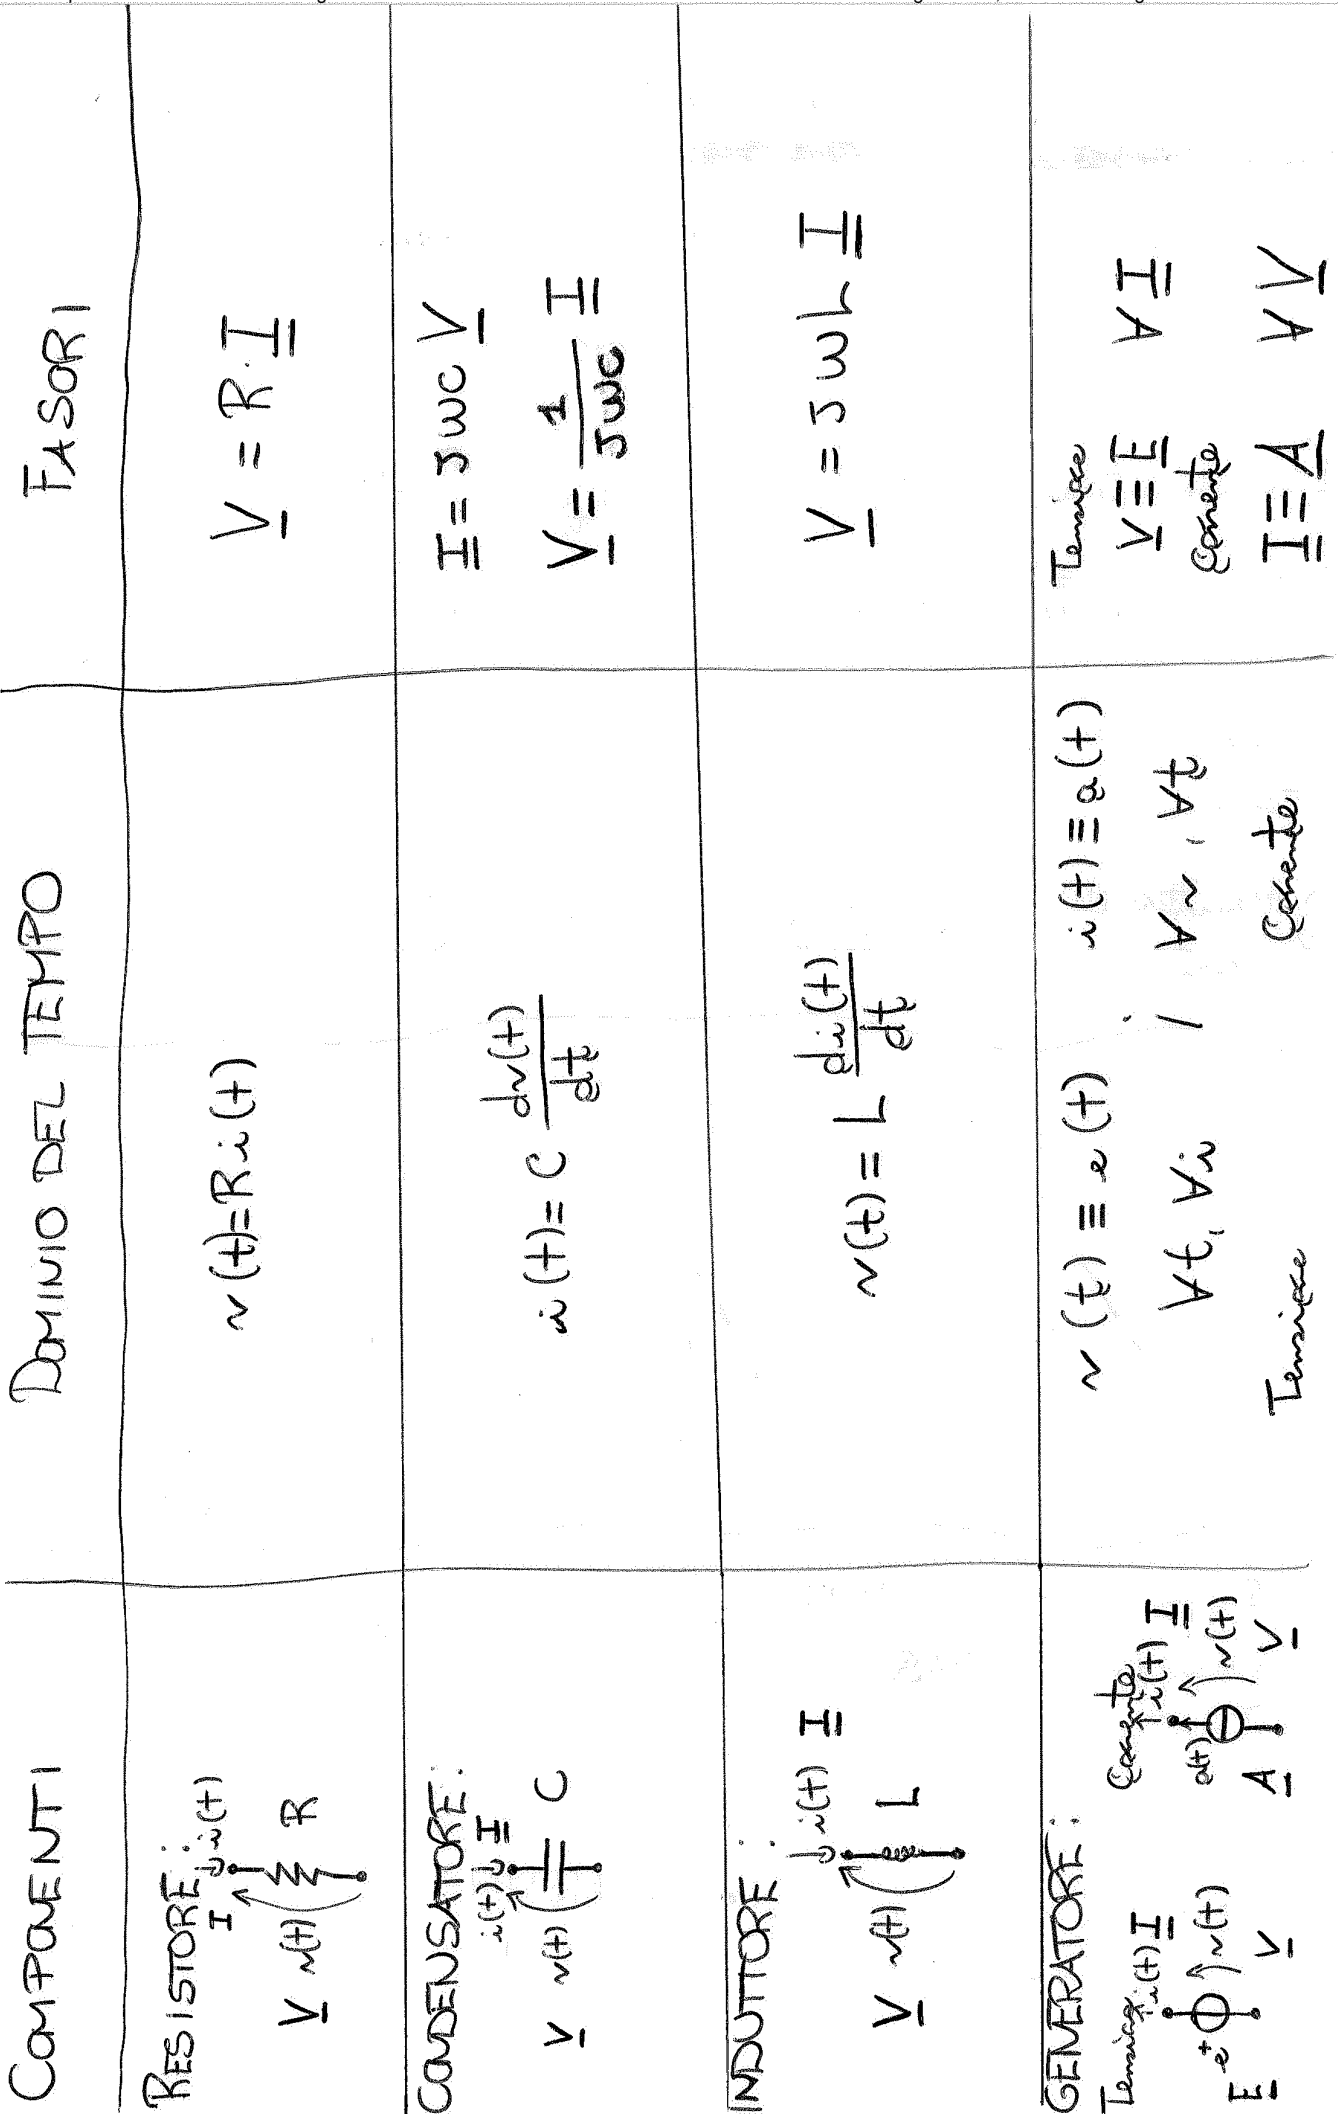 COMPONENTI DOMINIO DEL TEMPO FASORI
RESISTORE:
I i(t)
V v(t) R
v(t)=Ri(t)
V = R·I
CONDENSATORE:
i(t) I
V v(t) C
i(t)= C dv(t)/dt
I = JWC V
V = 1/JWC I
INDUTTORE:
i(t) I
V v(t) L
v(t) = L di(t)/dt
V = JWL I
GENERATORE:
Tensione Corrente
i(t) I i(t) I
E e + v(t) V
A a(t) v(t) V
v(t) ≡ e(t) ; i(t) ≡ a(t)
∀t, ∀i ∀v, ∀t
Tensione Corrente
Tensione
V ≡ E ∀ I
Corrente
I ≡ A ∀ V